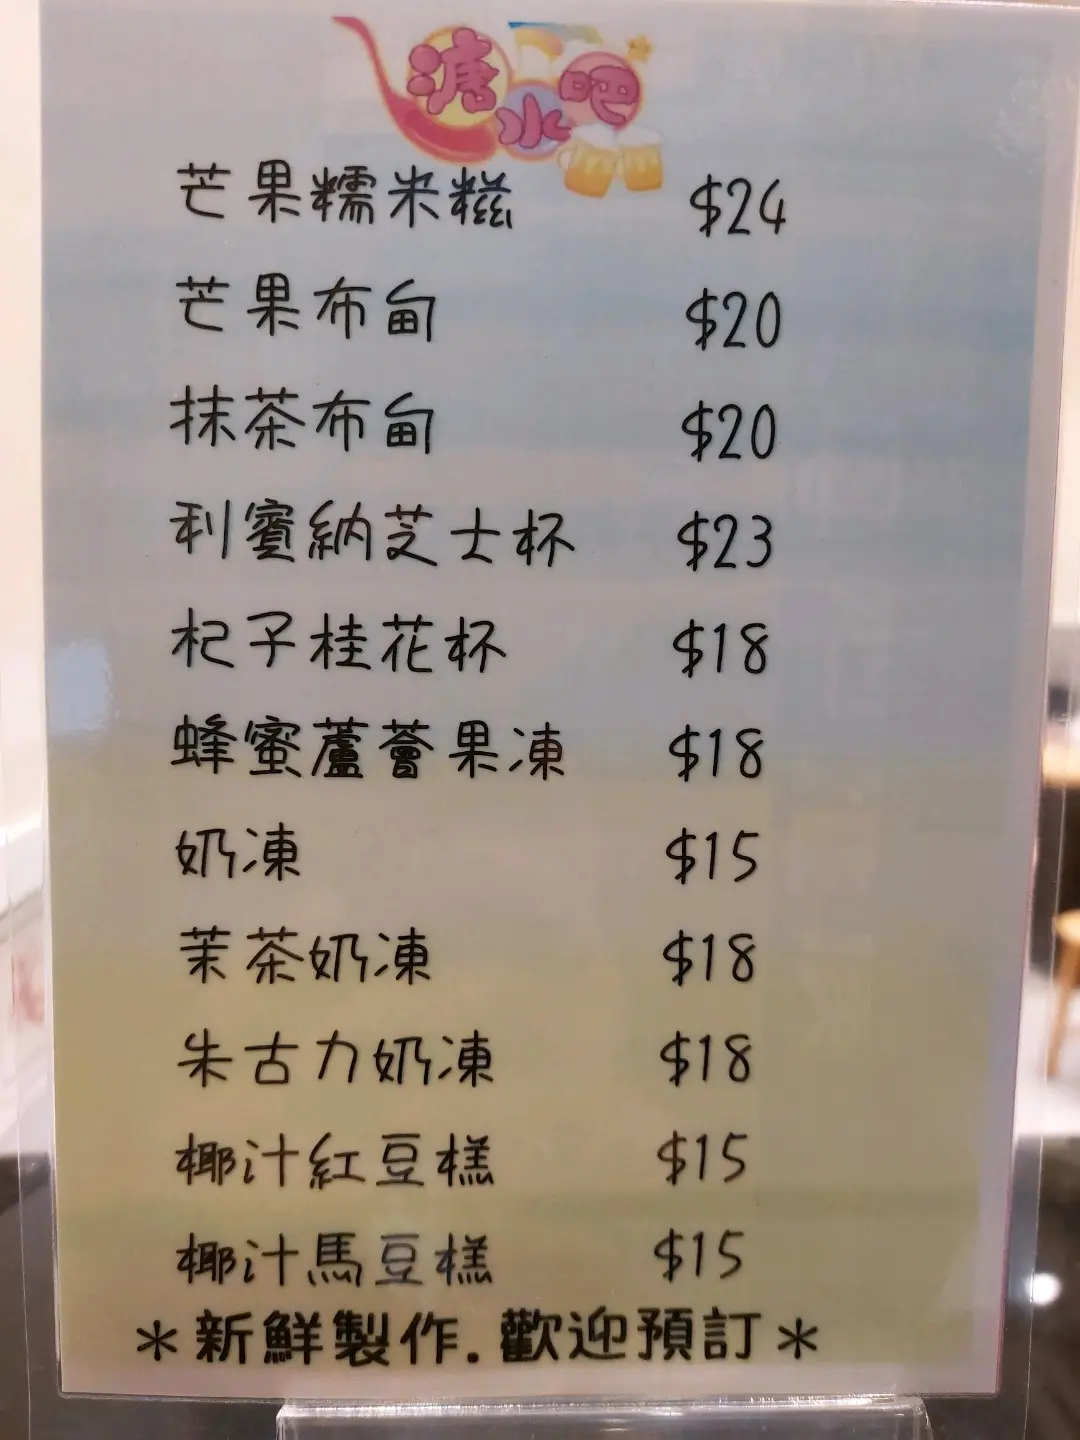 溏水吧
芒果糯米糍 $24
芒果布甸 $20
抹茶布甸 $20
利賓納芝士杯 $23
杞子桂花杯 $18
蜂蜜蘆薈果凍 $18
奶凍 $15
茉茶奶凍 $18
朱古力奶凍 $18
椰汁紅豆糕 $15
椰汁馬豆糕 $15
*新鮮製作.歡迎預訂*